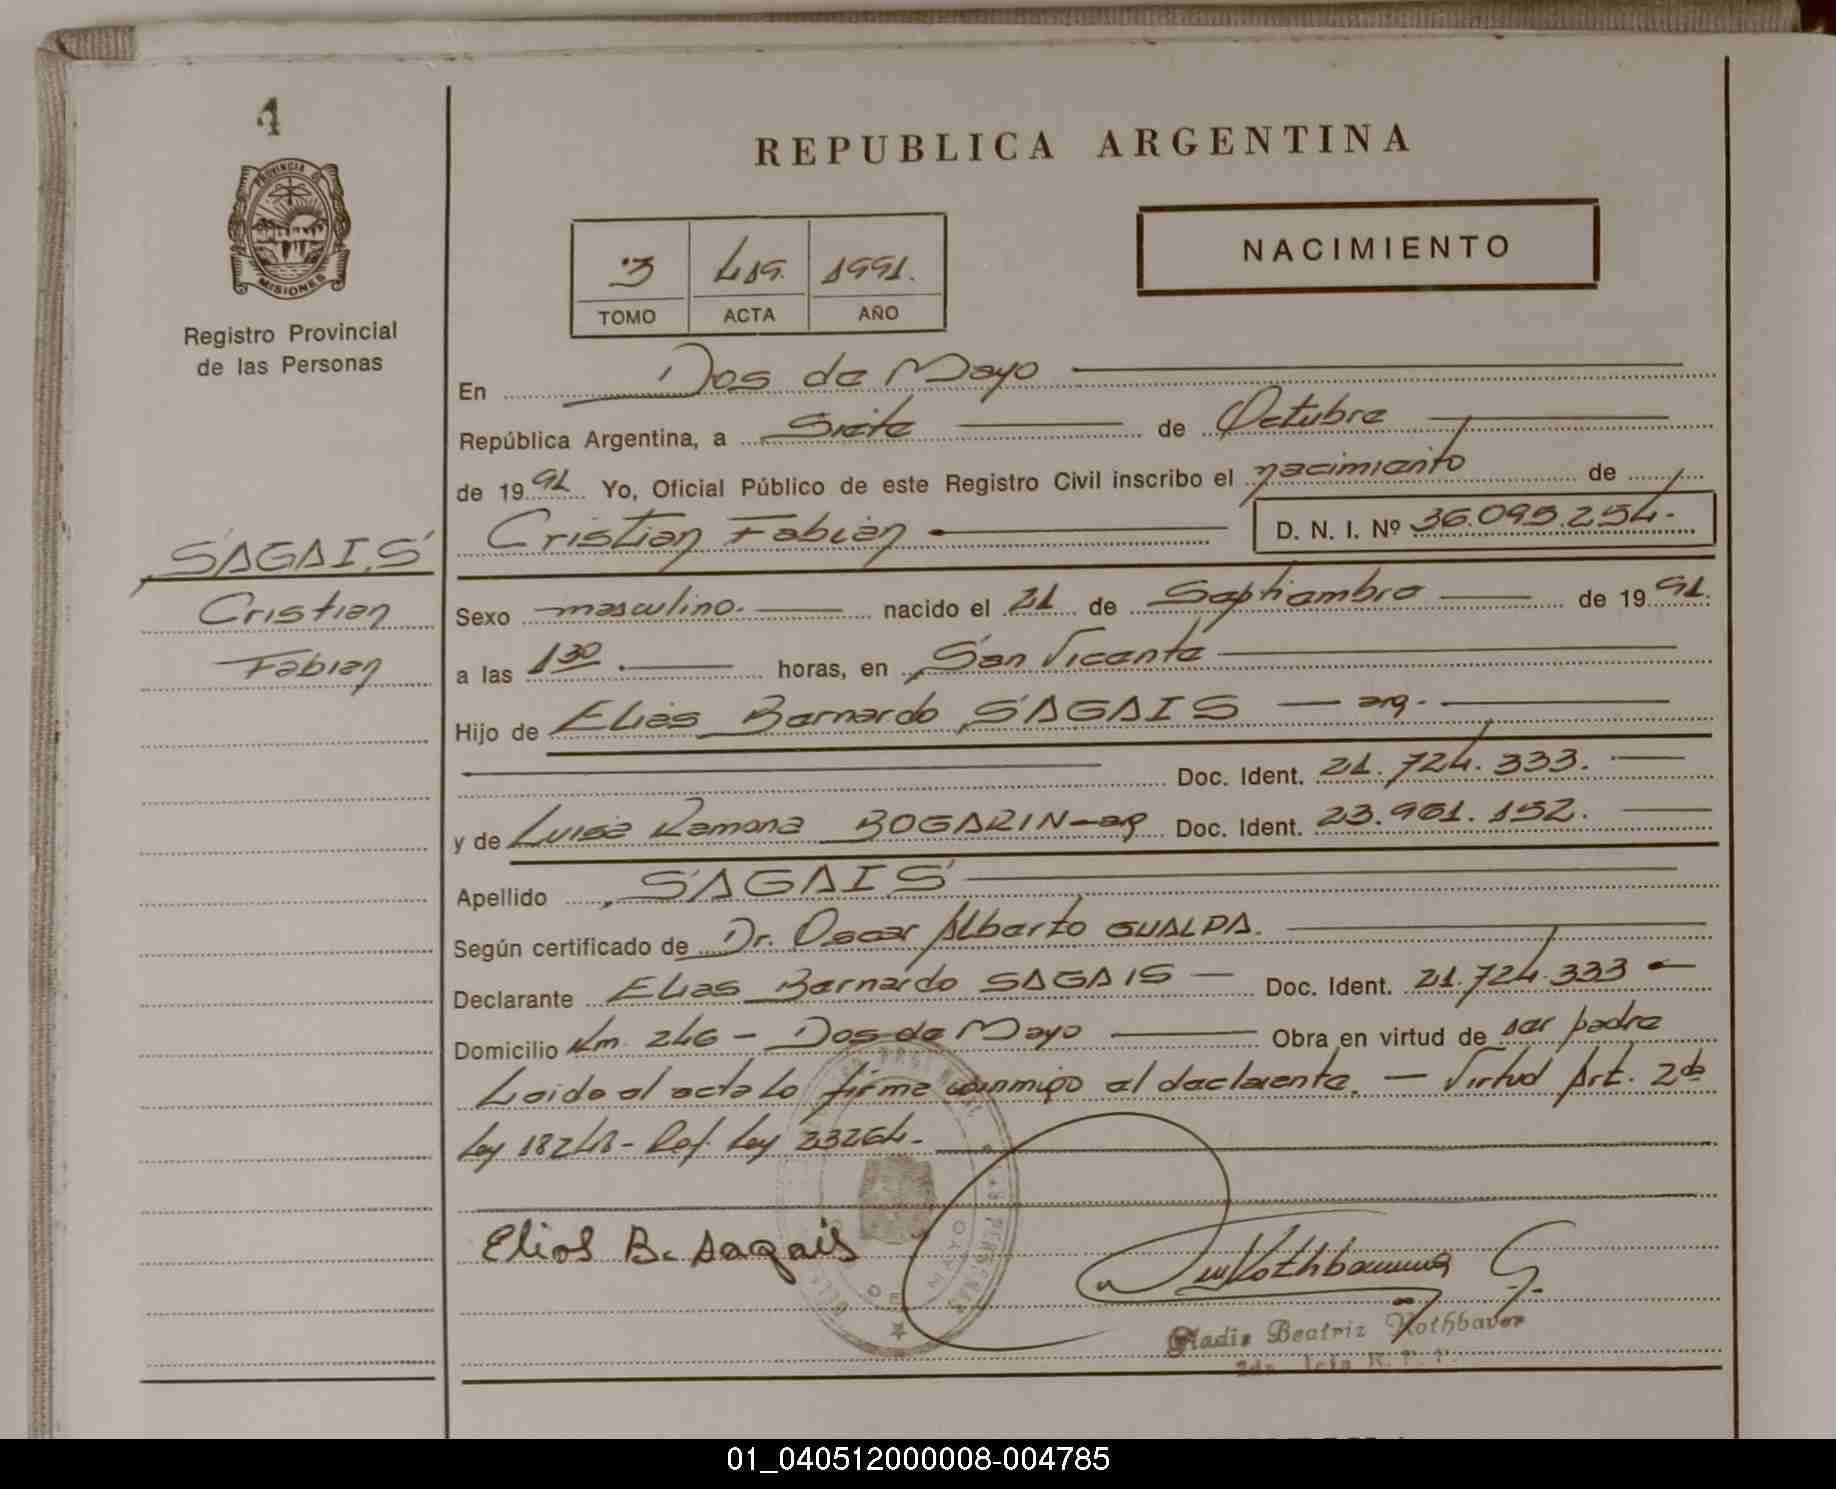 1
PROVINCIA DE
MISIONES
Registro Provincial
de las Personas
REPUBLICA ARGENTINA
NACIMIENTO
3 419. 1991.
TOMO ACTA AÑO
En Dos de Mayo
República Argentina, a Siete de Octubre
de 1991 Yo, Oficial Público de este Registro Civil inscribo el nacimiento de
Cristian Fabian D. N. I. Nº 36.095.254.
SAGAIS
Cristian
Fabian
Sexo masculino. nacido el 21 de Septiembre de 1991.
a las 1 30 horas, en San Vicente
Hijo de Elias Bernardo SAGAIS — arg.
Doc. Ident. 21.724.333.
y de Luisa Ramona BOGARIN - arg Doc. Ident. 23.901.152.
Apellido SAGAIS
Según certificado de Dr. Oscar Alberto GUALDA.
Declarante Elias Bernardo SAGAIS — Doc. Ident. 21.724.333
Domicilio Km. 246 - Dos de Mayo Obra en virtud de ser padre
Leida el acta lo firma conmigo el declarante. — Virtud Art. 2do
Ley 18248 - Ref. Ley 23264.
Elias B. Sagais
Rothbauer G.
Gladis Beatriz Rothbauer
01_040512000008-004785